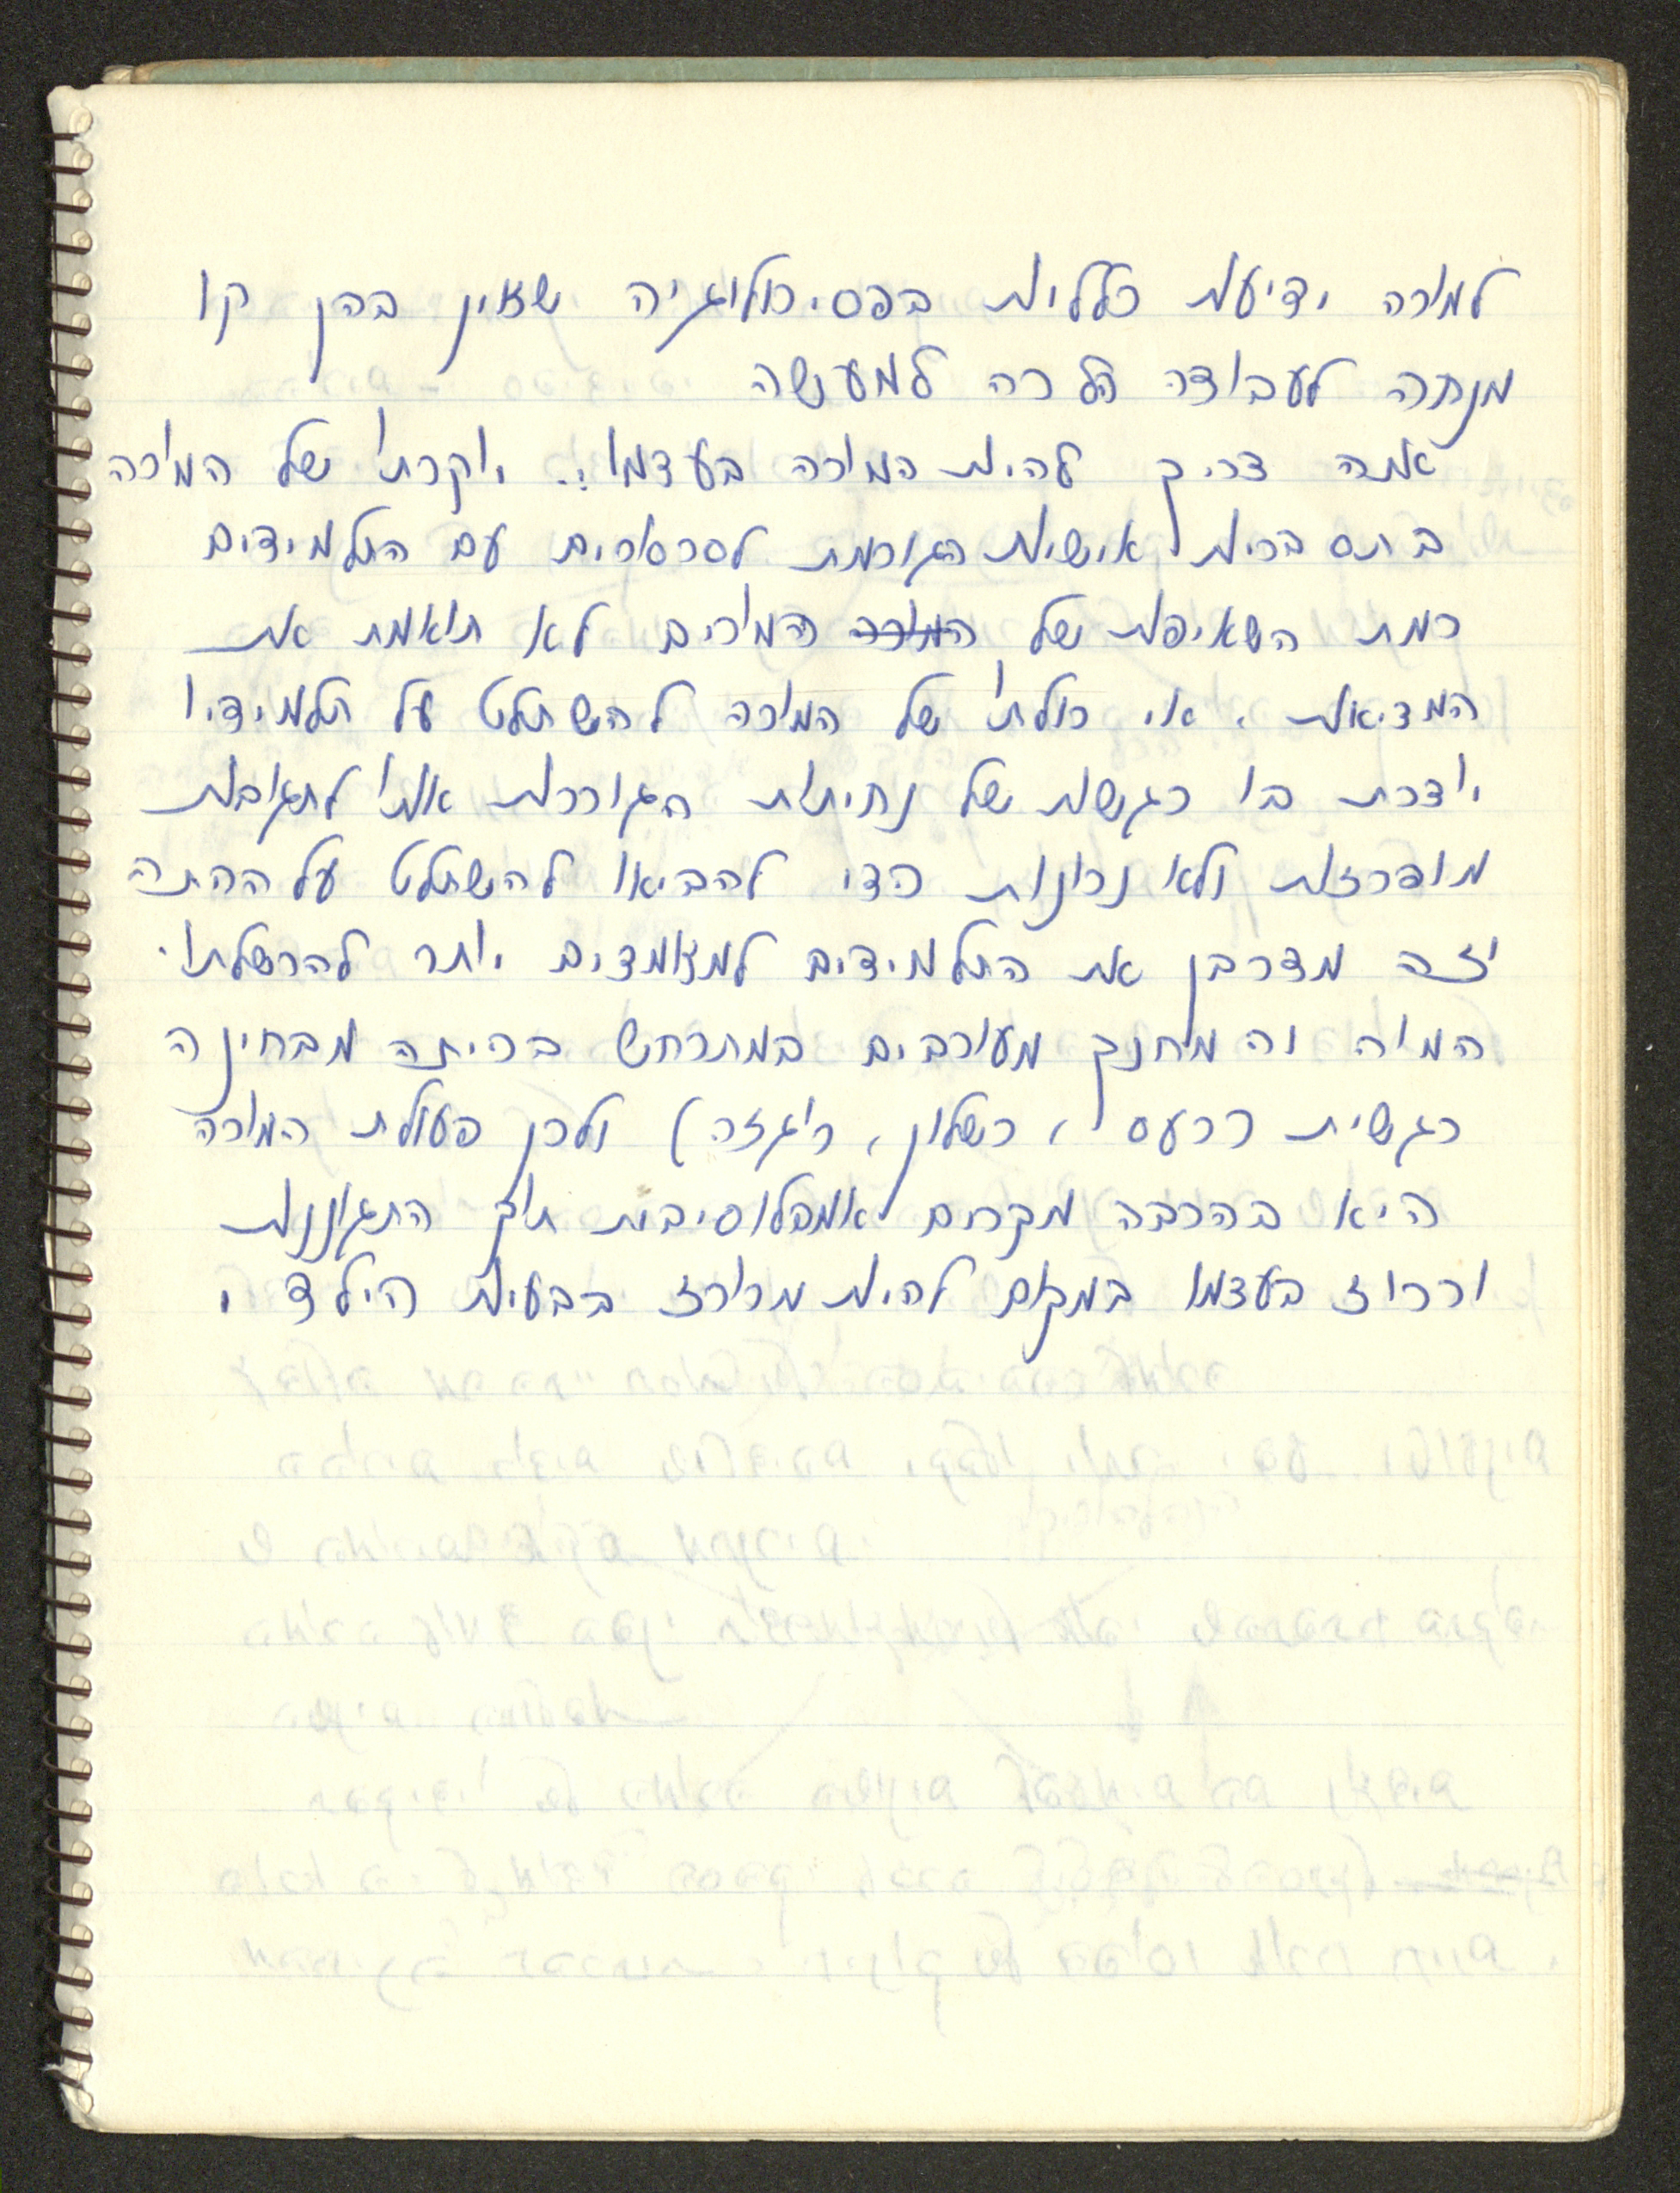 למורה ידיעות כלליות בפסיכולוגיה שאין בהן קו
מנחה לעבודה הלכה למעשה
אתה צריך להיות המורה בעצמו. יוקרתו של המורה
בתסבוכות אישיות הגורמת לסכסוכים עם התלמידים
רמת השאיפות של המורה המורים לא תואמת את
המציאות. אי יכולתו של המורה להשתלט על תלמידיו
יוצרת בו רגשות של נחיתות הגוררות אותו לתגובות
מופרזות ולא נכונות כדי להביאו להשתלט על הכתה
וזה מדרבן את התלמידים למאמצים יותר להכשלתו.
המורה והמחנך מעורבים במתרחש בכיתה מבחינה
רגשית (כעס, כשלון, רוגזה) ולכן פעולת המורה
היא בהרבה מקרים אימפולסיבית תוך התגוננות
וריכוז בעצמו במקום להיות מרוכז בבעיות הילד.